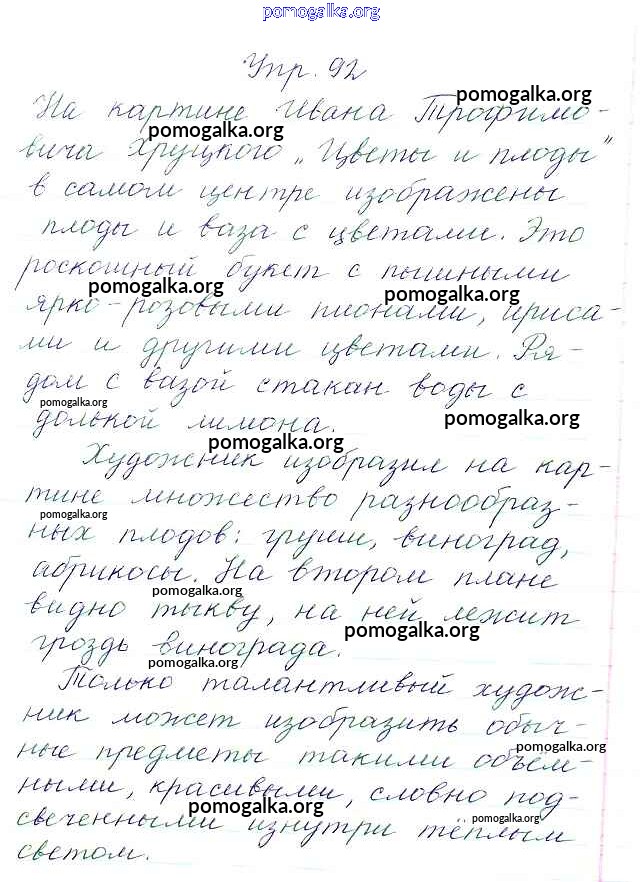 pomogalka.org
Упр. 92
На картине Ивана Трофимо-
pomogalka.org
pomogalka.org
вича Хруцкого „Цветы и плоды"
в самом центре изображены
плоды и ваза с цветами. Это
роскошный букет с пышными
pomogalka.org
pomogalka.org
ярко-розовыми пионами, ириса-
ми и другими цветами. Ря-
дом с вазой стакан воды с
pomogalka.org
pomogalka.org
долькой лимона.
pomogalka.org
Художник изобразил на кар-
тине множество разнообраз-
pomogalka.org
ных плодов: груши, виноград,
абрикосы. На втором плане
pomogalka.org
видно тыкву, на ней лежит
pomogalka.org
гроздь винограда.
pomogalka.org
Только талантливый худож-
ник может изобразить обыч-
pomogalka.org
ные предметы такими объём-
ными, красивыми, словно под-
pomogalka.org
pomogalka.org
свеченными изнутри тёплым
светом.